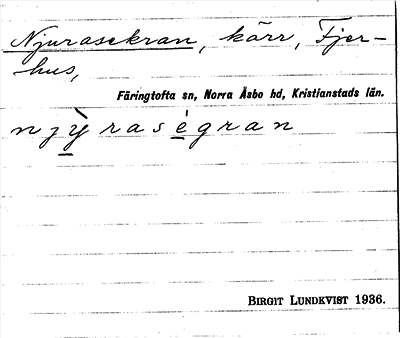 Njurasekran, kärr, Fjer-
hus,
Färingtofta sn, Norra Åsbo hd, Kristianstads län.
n j ỳ̠ r a s é̠ g r a n
BIRGIT LUNDKVIST 1936.